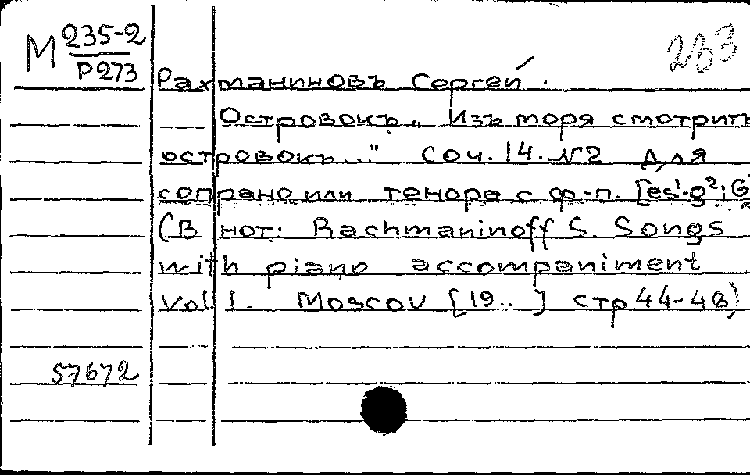 М 235-2
Р273
263
Рахманиновъ Сергей.
Островокъ. „Изъ моря смотритъ
островокъ..." Соч. 14. №2 Для
сопрано или тенора с ф-п. [es¹-g²; G]
(В нот: Rachmaninoff S. Songs
with piano accompaniment
vol 1. Moscou [19..] стр 44-48)
57672